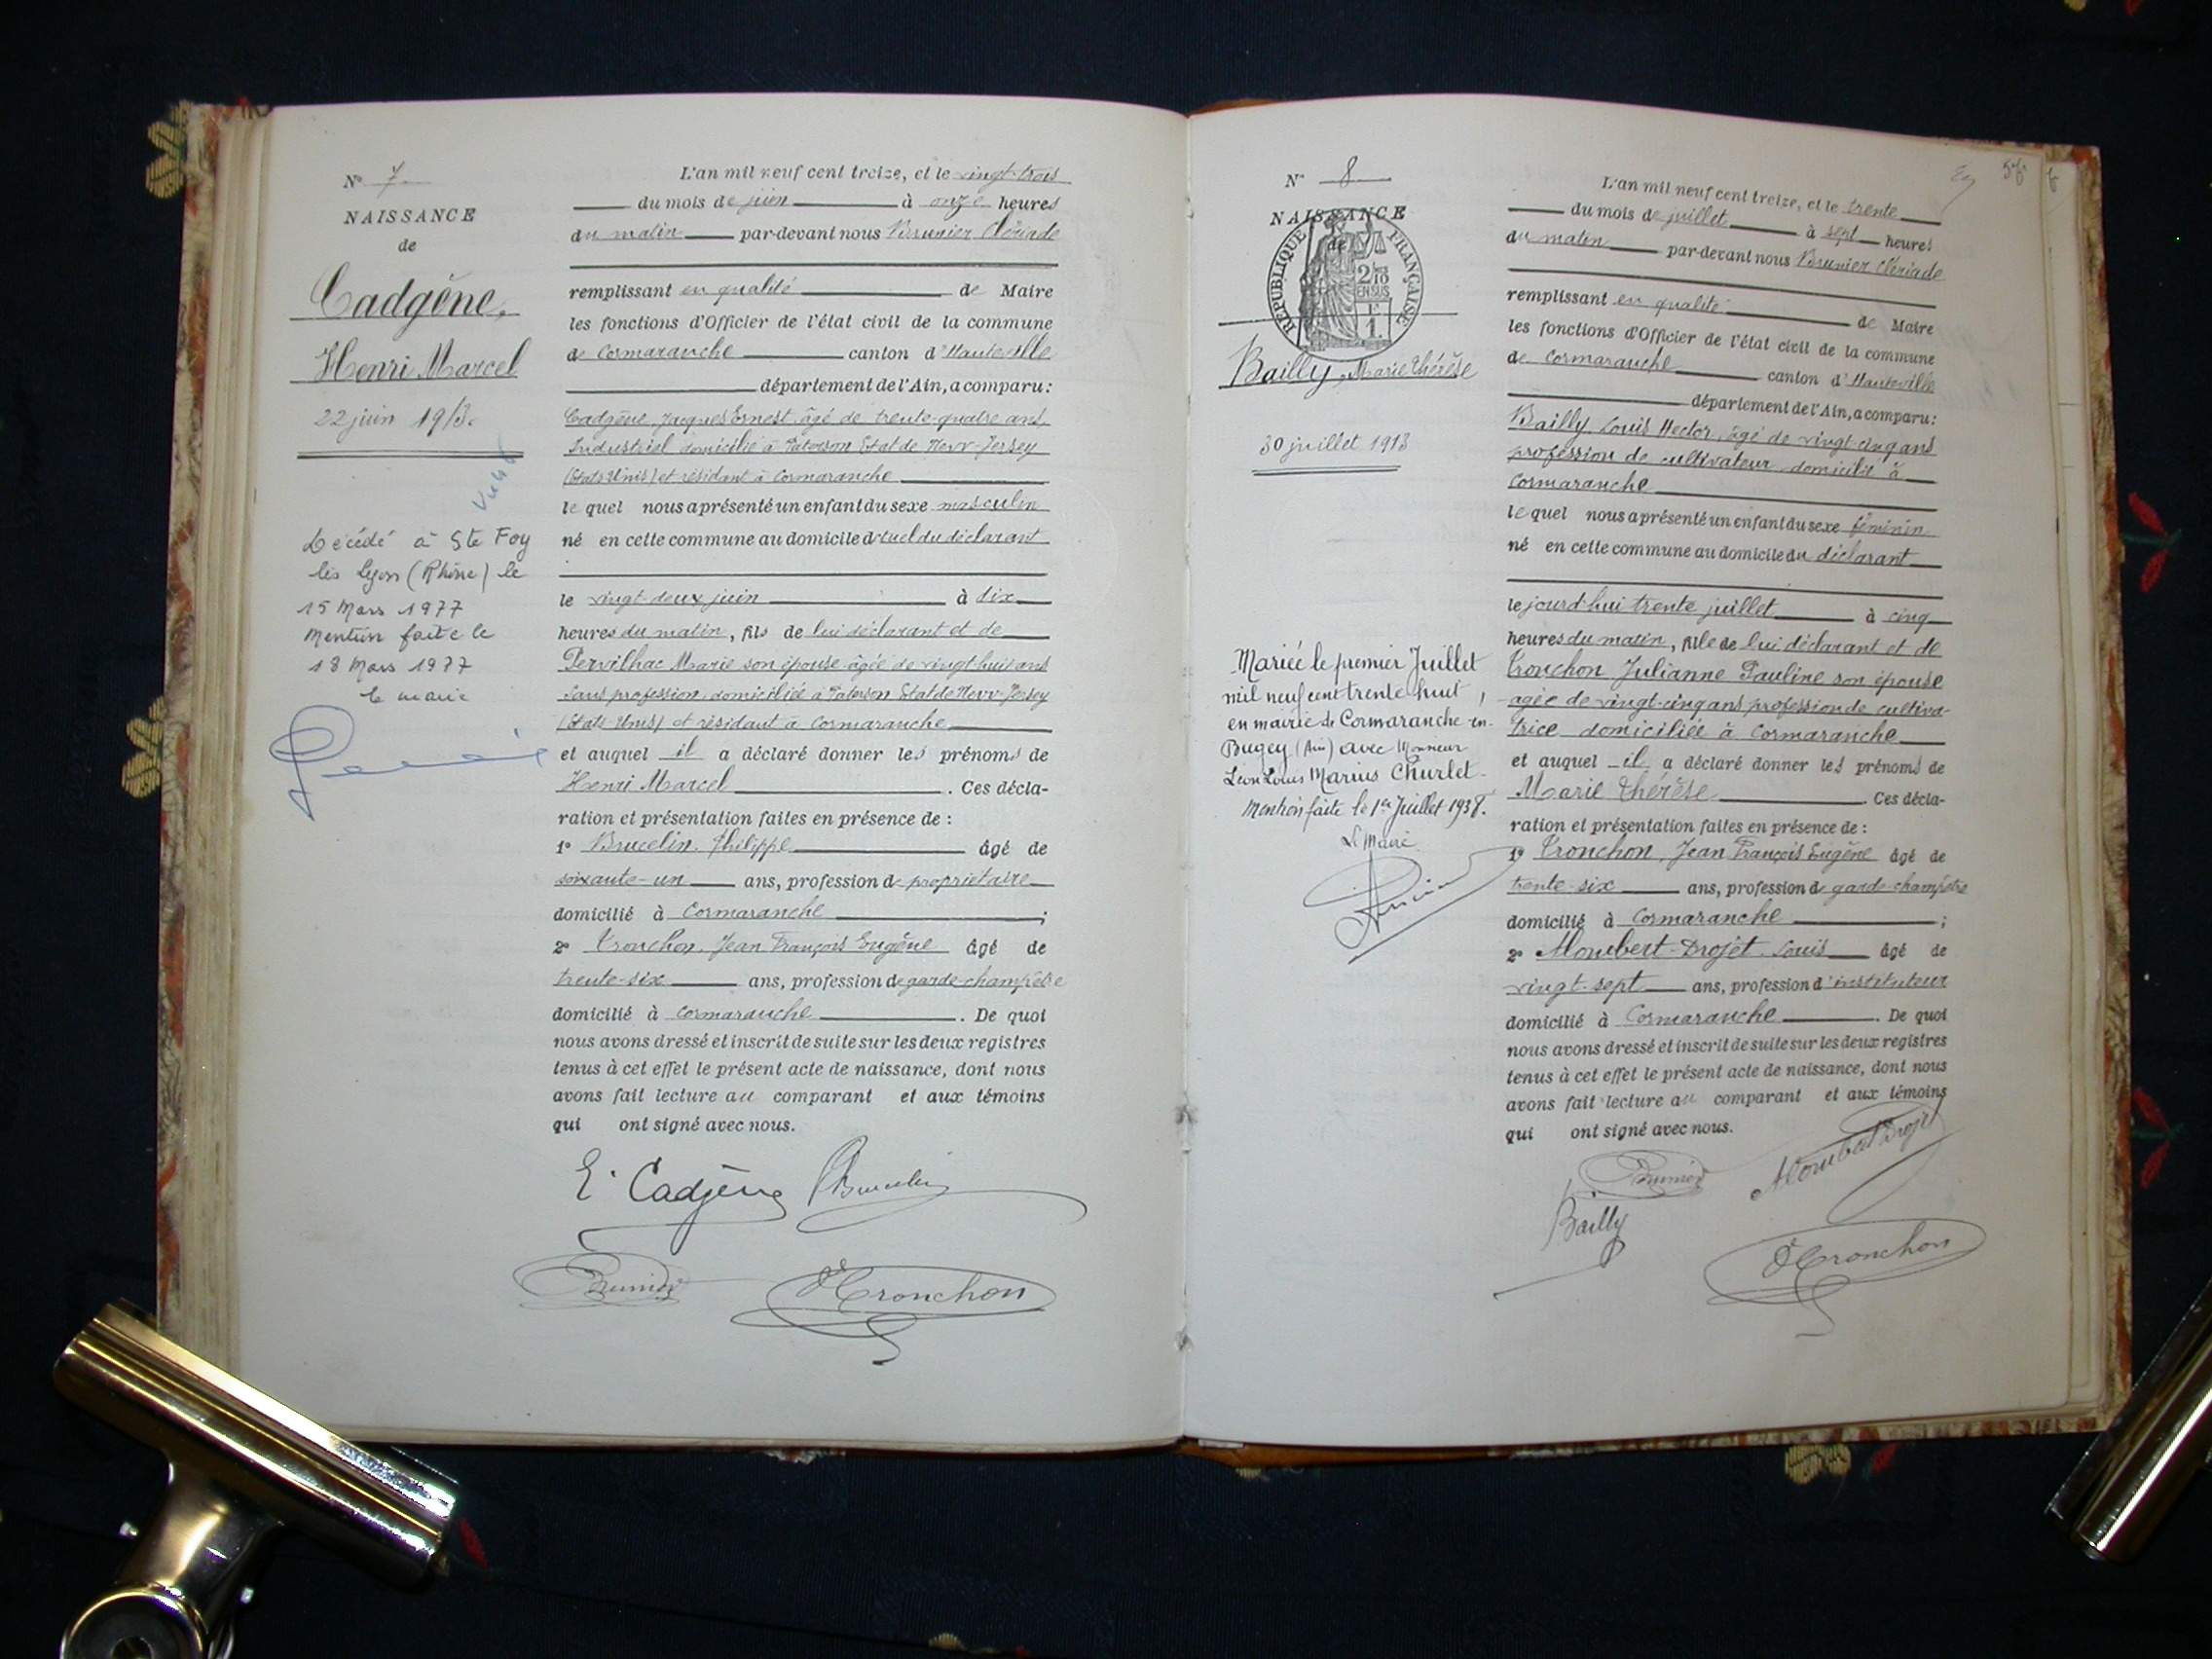 N° 7
NAISSANCE
de
Cadgène,
Henri Marcel
22 juin 1913.
Décédé à Ste Foy
lès Lyon (Rhône) le
15 Mars 1977
Mention faite le
18 Mars 1977
le maire
L'an mil neuf cent treize, et le vingt-trois
du mois de juin à onze heures
du matin par-devant nous Brunier Clériade
remplissant en qualité de Maire
les fonctions d'Officier de l'état civil de la commune
de Cormaranche canton d'Hauteville
département de l'Ain, a comparu:
Cadgène, Jacques Ernest, âgé de trente-quatre ans,
Industriel domicilié à Paterson Etat de New-Jersey
(Etats Unis) et résidant à Cormaranche
lequel nous a présenté un enfant du sexe masculin
né en cette commune au domicile actuel du déclarant
le vingt-deux juin à dix
heures du matin, fils de lui déclarant et de
Pervilhac Marie son épouse âgée de vingt-huit ans
sans profession, domiciliée à Paterson Etat de New-Jersey
(Etats Unis) et résidant à Cormaranche
et auquel il a déclaré donner les prénoms de
Henri Marcel. Ces décla-
ration et présentation faites en présence de :
1° Brucelin, Philippe âgé de
soixante-un ans, profession de propriétaire
domicilié à Cormaranche ;
2° Tronchon, Jean François Eugène âgé de
trente-six ans, profession de garde-champêtre
domicilié à Cormaranche. De quoi
nous avons dressé et inscrit de suite sur les deux registres
tenus à cet effet le présent acte de naissance, dont nous
avons fait lecture au comparant et aux témoins
qui ont signé avec nous.
E. Cadgène Brucelin
Brunier Tronchon
N° 8
NAISSANCE
de
RÉPUBLIQUE FRANÇAISE
2/10
EN SUS
1 F
Bailly, Marie Thérèse
30 juillet 1913
Mariée le premier Juillet
mil neuf cent trente huit,
en mairie de Cormaranche-en-
Bugey (Ain) avec Monsieur
Léon Louis Marius Churlet.
Mention faite le 1er Juillet 1938.
Le Maire
58
L'an mil neuf cent treize, et le trente
du mois de juillet à sept heures
du matin par-devant nous Brunier Clériade
remplissant en qualité de Maire
les fonctions d'Officier de l'état civil de la commune
de Cormaranche canton d'Hauteville
département de l'Ain, a comparu:
Bailly Louis Hector, âgé de vingt-cinq ans
profession de cultivateur domicilié à
Cormaranche
lequel nous a présenté un enfant du sexe féminin
né en cette commune au domicile du déclarant
le jourd'hui trente juillet à cinq
heures du matin, fille de lui déclarant et de
Tronchon Julianne Pauline son épouse
agée de vingt-cinq ans profession de cultiva-
trice domiciliée à Cormaranche
et auquel il a déclaré donner les prénoms de
Marie Thérèse. Ces décla-
ration et présentation faites en présence de :
1° Tronchon, Jean François Eugène âgé de
trente-six ans, profession de garde-champêtre
domicilié à Cormaranche ;
2° Moubert-Drojet Louis âgé de
vingt-sept ans, profession d'instituteur
domicilié à Cormaranche. De quoi
nous avons dressé et inscrit de suite sur les deux registres
tenus à cet effet le présent acte de naissance, dont nous
avons fait lecture au comparant et aux témoins
qui ont signé avec nous.
Brunier Moubert Drojet
Bailly
Tronchon